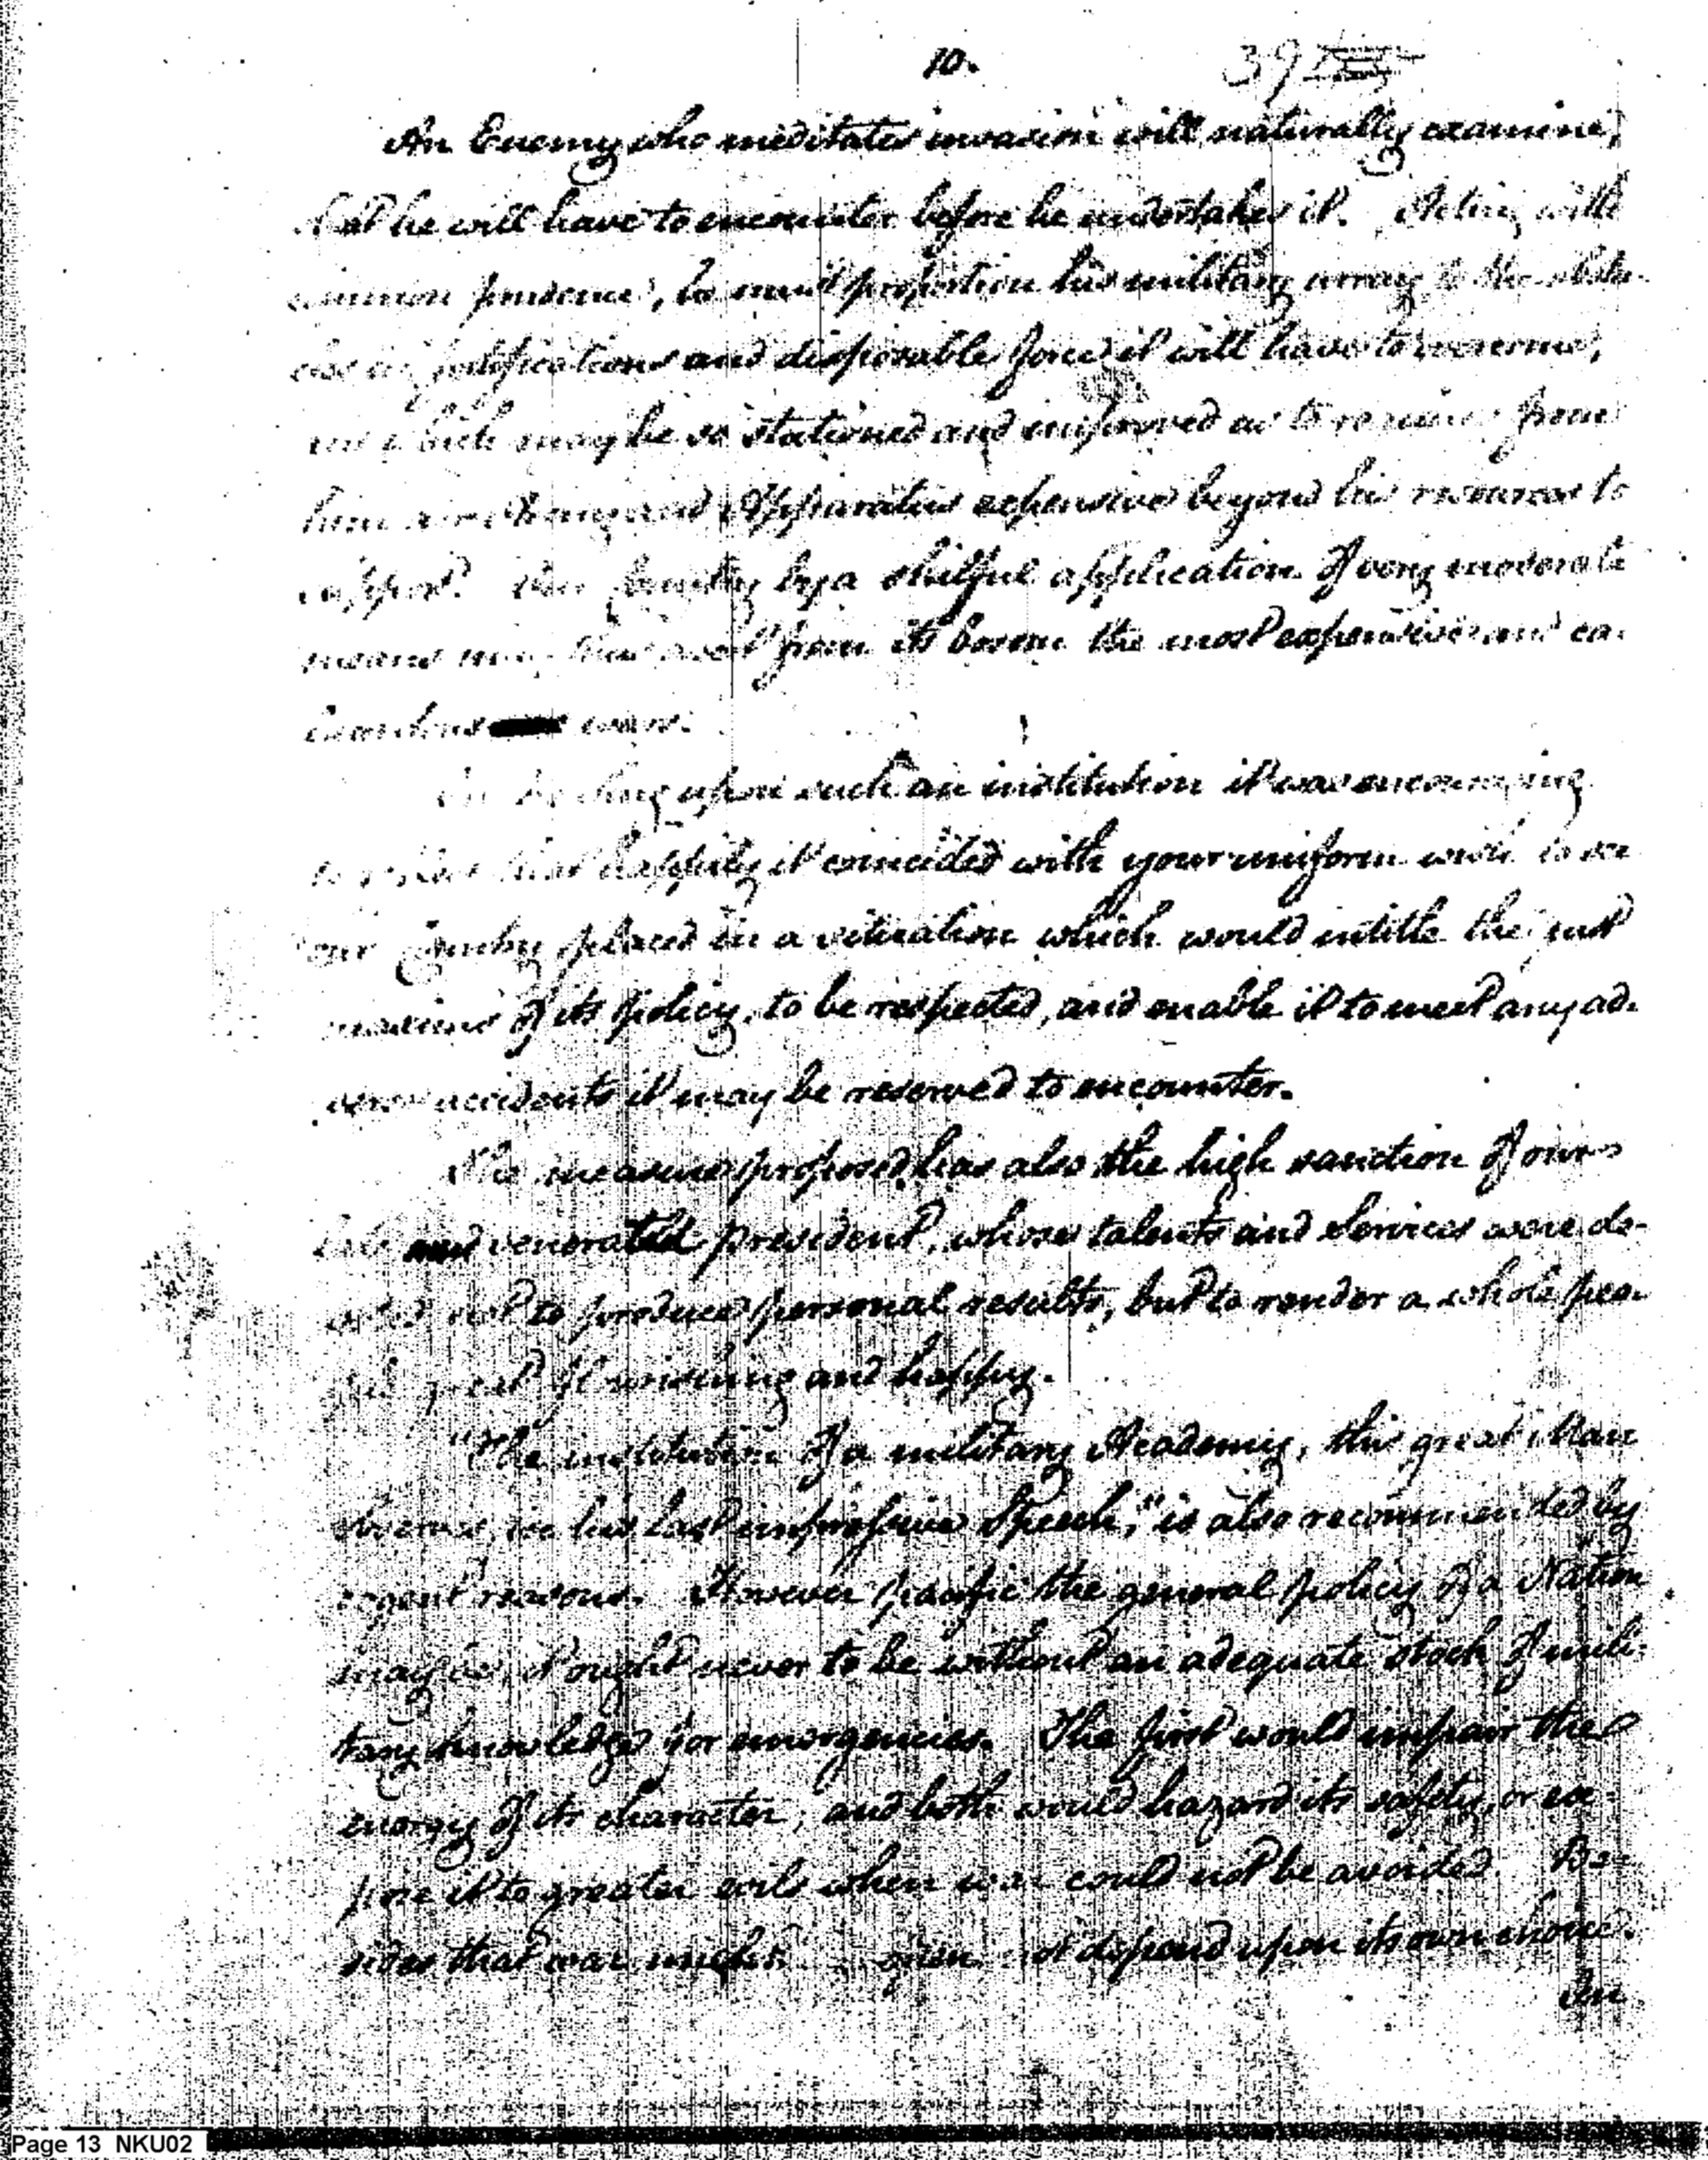 10.
39
An Enemy who meditates invasion will naturally examine,
what he will have to encounter before he undertakes it. Acting with
common prudence, he must proportion his military array to the obsta-
cles in fortifications and disposable force it will have to overcome,
which may be so stationed and improved as to require from
him and apparatus expensive beyond his resources to
support. Our Country by a skilful application of very moderate
means may thus avert from its bosom the most expensive and ca-
lamitous wars.
upon such an institution it was encouraging
to reflect that happily it coincided with your uniform wish to see
our Country placed in a situation which would intitle the just
maxims of its policy, to be respected, and enable it to meet any ad-
verse accidents it may be reserved to encounter.
The measure proposed has also the high sanction of our
late and venerated president, whose talents and services were de-
voted not to produce personal results, but to render a whole peo-
ple great flourishing and happy.
"The institution of a military Academy, this great Man
observes, in his last impressive Speech," is also recommended by
cogent reasons. However pacific the general policy of a Nation
may be, it ought never to be without an adequate stock of mili-
tary knowledge for emergencies. The first would impair the
energy of its character, and both would hazard its safety, or ex-
pose it to greater evils when war could not be avoided. Be-
sides that war might often not depend upon its own choice.
In
Page 13 NKU02